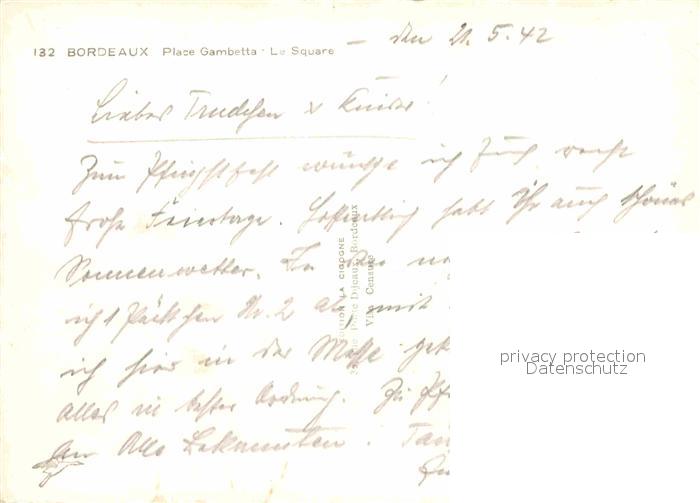 132 BORDEAUX Place Gambetta - Le Square
den 21. 5. 42
Liebes Trudchen & Kinder!
Zum Pfingstfest wünsche ich Euch recht
frohe Feiertage. Hoffentlich habt Ihr auch schönes
Sonnenwetter. In
ich 1 Päckchen Nr. 2 ab, mit
ich hier in der Masse
alles in bester Ordnung. Zu
An Alle Bekannten
EDITION LA CIGOGNE
Porte Dijeaux, Bordeaux
Visa Censure
privacy protection
Datenschutz